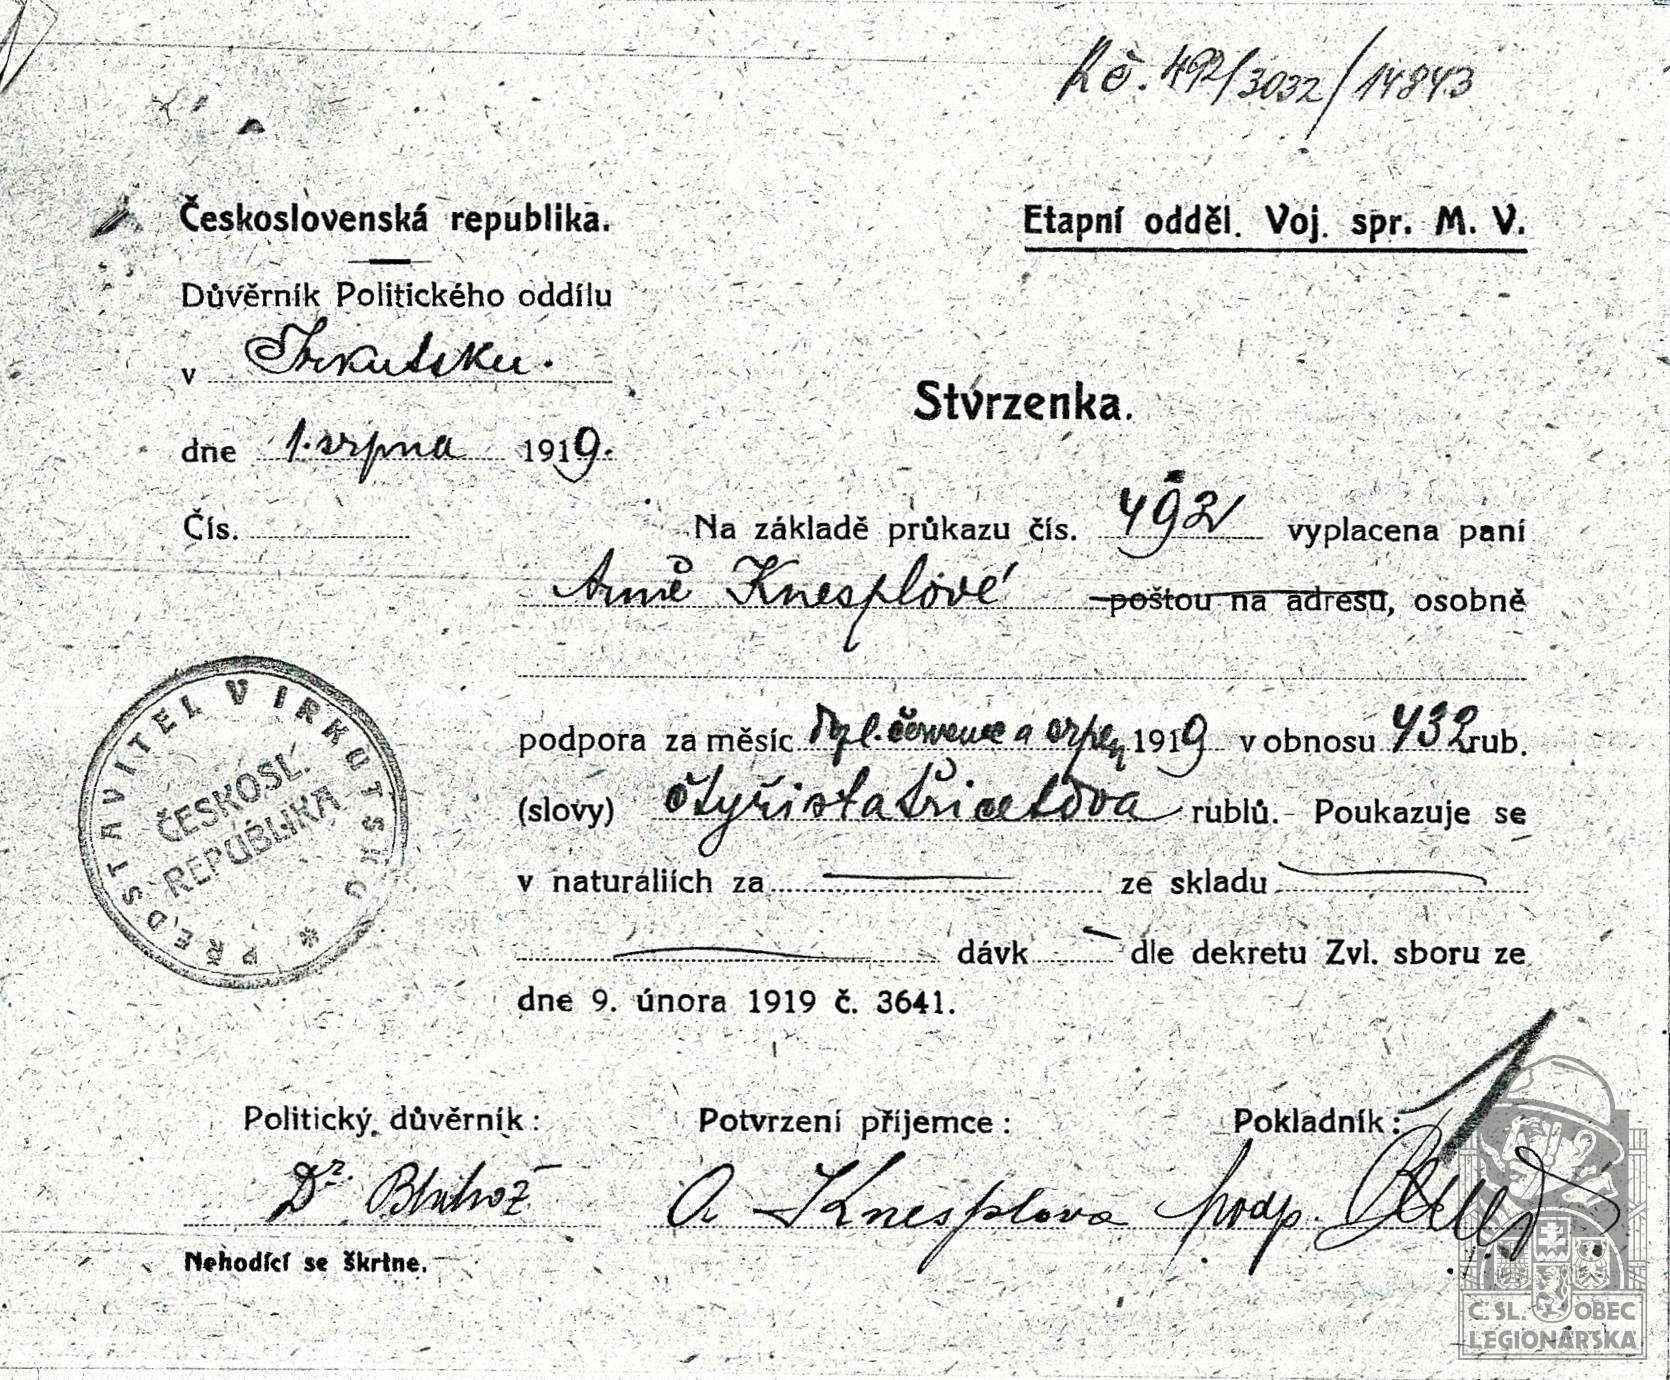 Kč. 492/3032/14843
Československá republika.
Etapní odděl. Voj. spr. M. V.
Důvěrník Politického oddílu
v Irkutsku.
Stvrzenka.
dne 1. srpna 1919.
Čís.
Na základě průkazu čís. 492 vyplacena paní
Anně Knesplové poštou na adresu, osobně
podpora za měsíc červenec a srpen 1919 v obnosu 432 rub.
(slovy) čtyřistatřicetdva rublů. Poukazuje se
v naturáliích za ze skladu
dávk dle dekretu Zvl. sboru ze
dne 9. února 1919 č. 3641.
PŘEDSTAVITEL V IRKUTSKU *
ČESKOSL.
REPUBLIKA
Politický důvěrník: Potvrzení příjemce: Pokladník:
Dr. A Knesplova podp.
Nehodící se škrtne.
Č. SL. OBEC
LEGIONÁŘSKÁ